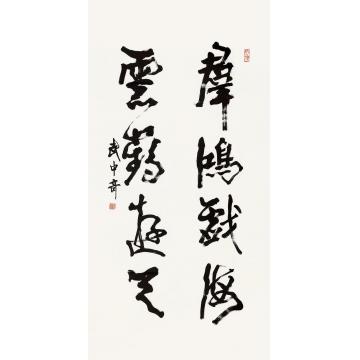 群鴻戲海
雲鶴遊天
武中奇